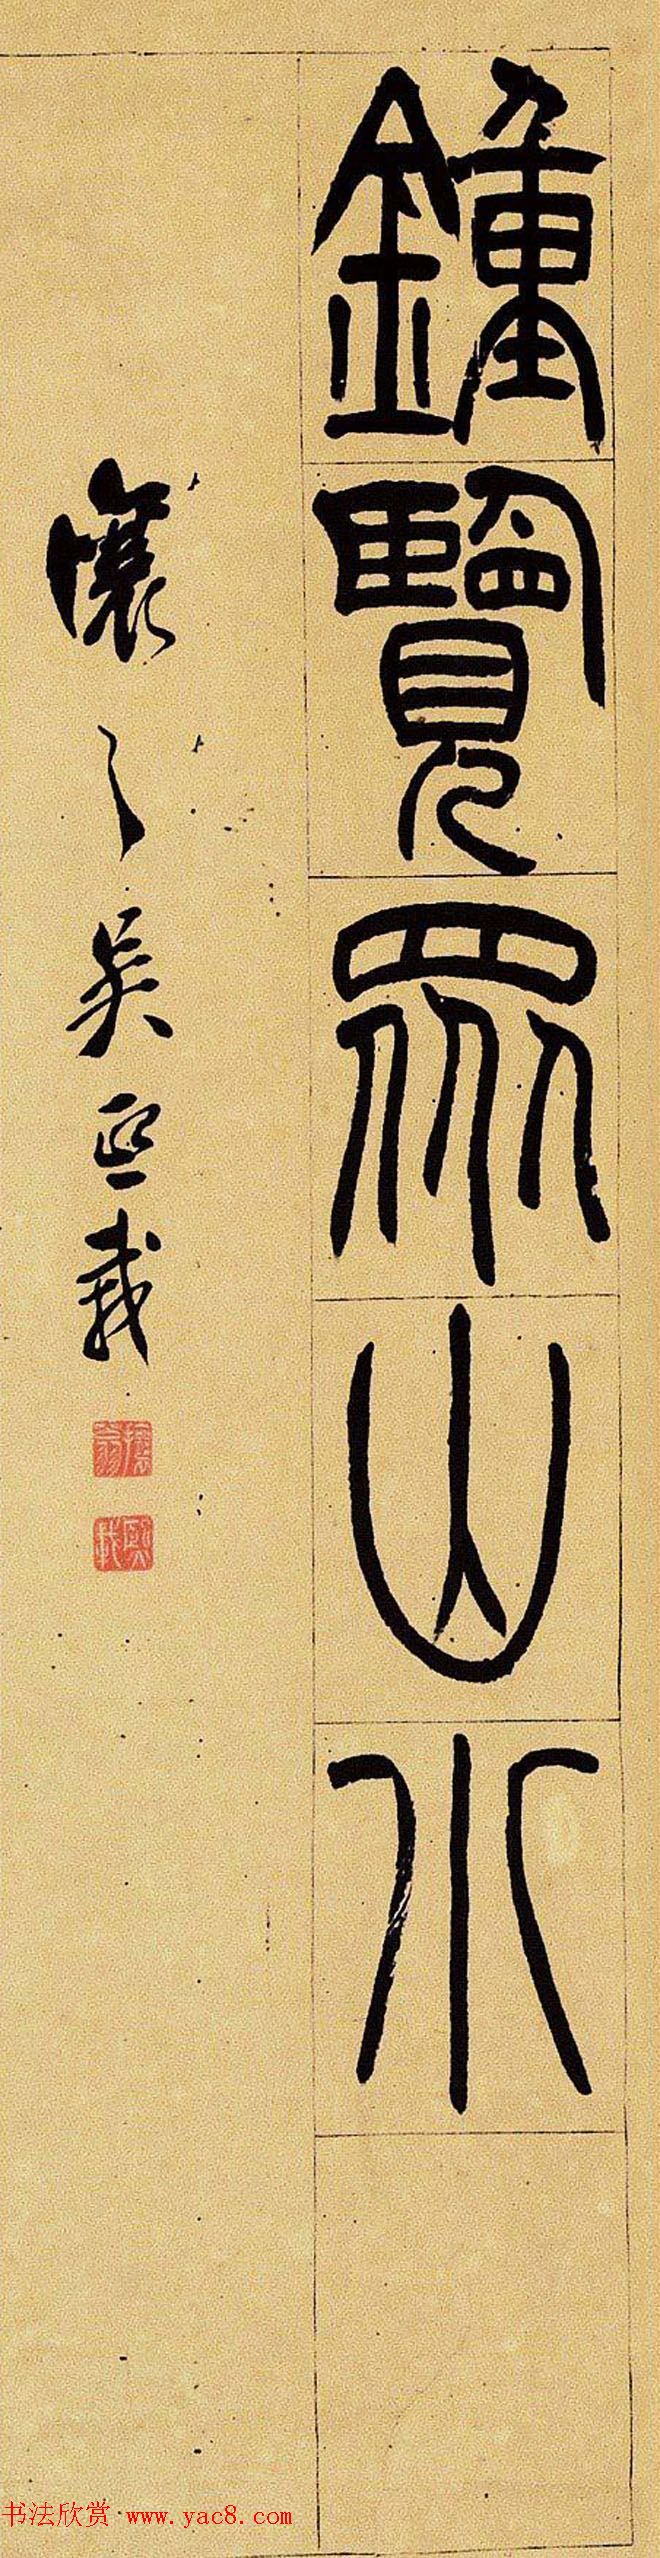 鍾覽眾山水
讓之吳熙載
书法欣赏 www.yac8.com